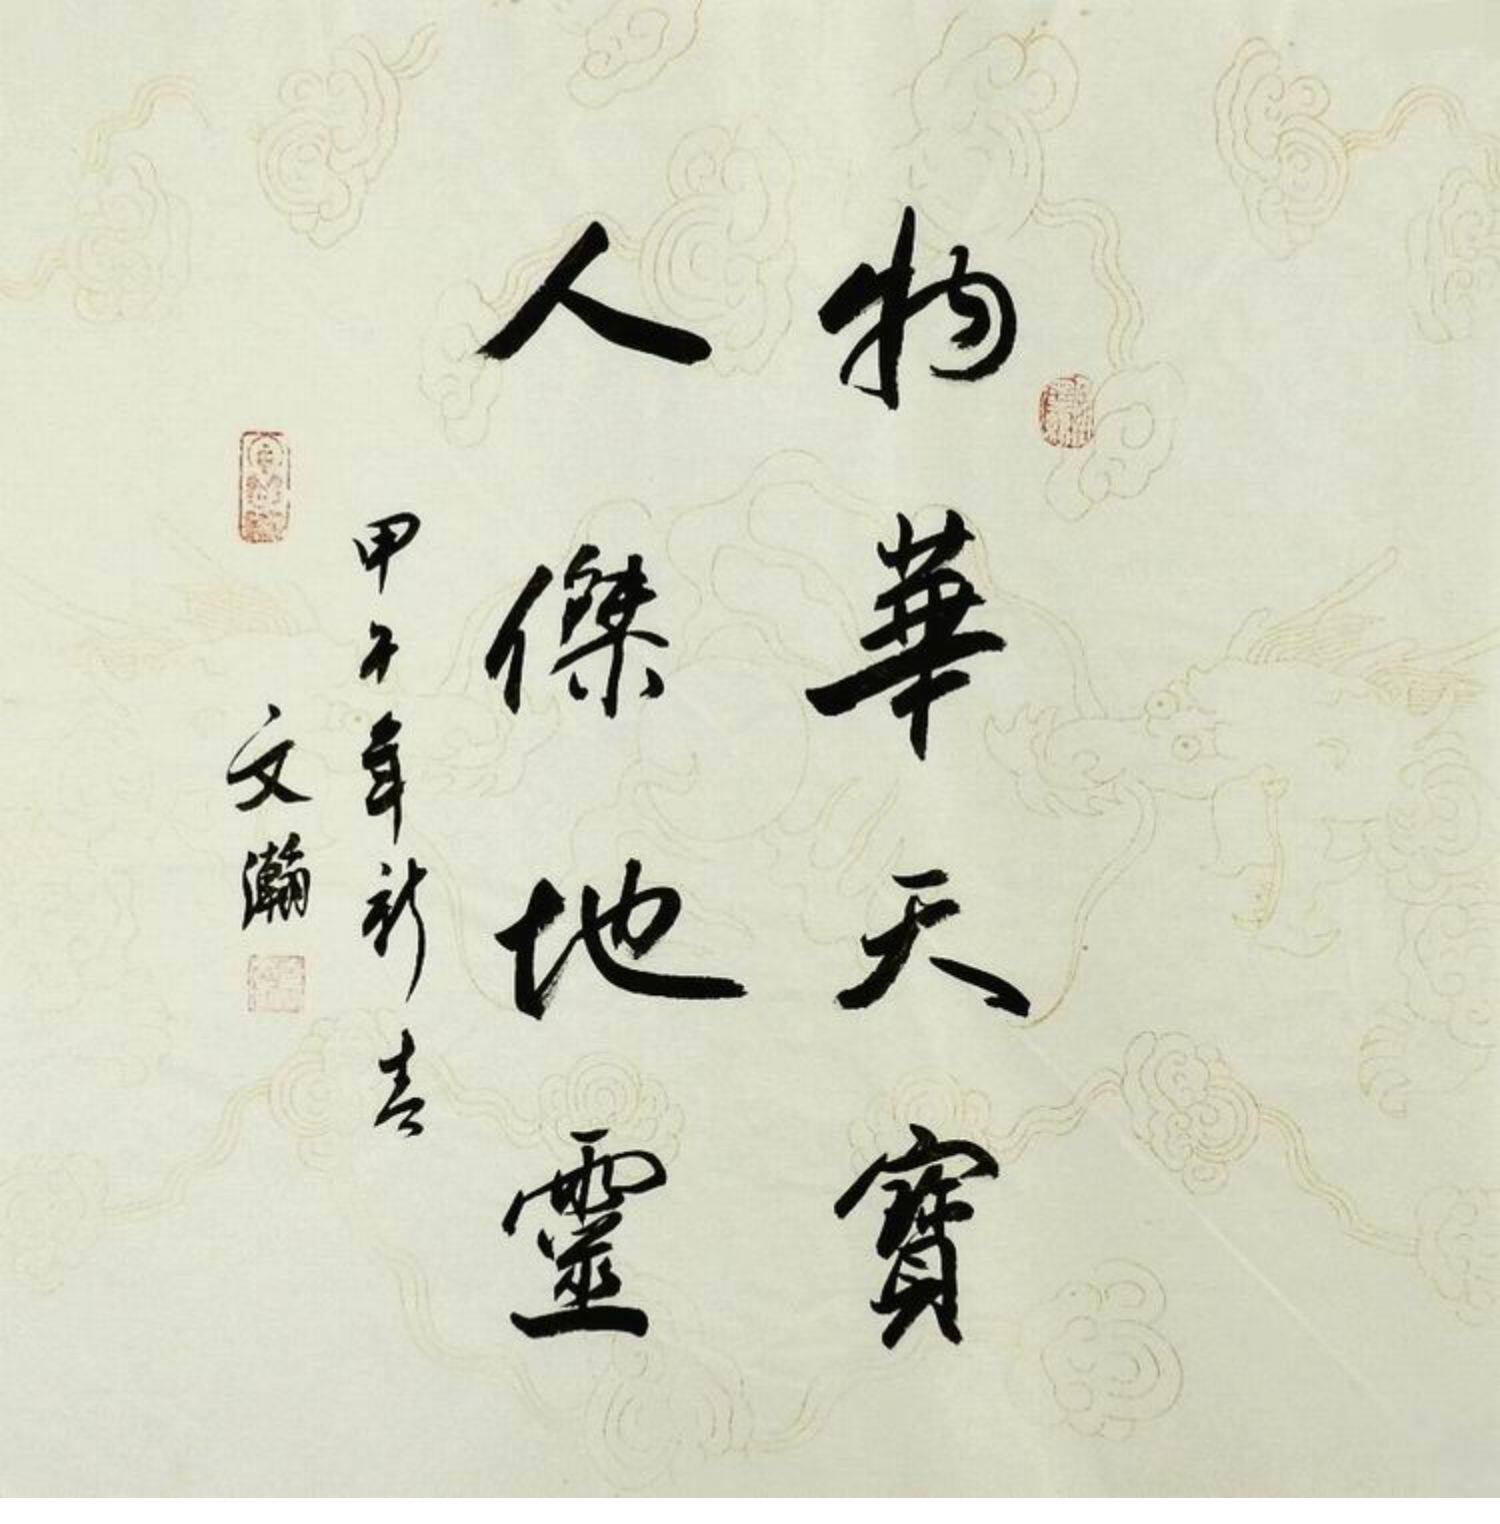 物華天寶
人傑地靈
甲午年新春
文瀚